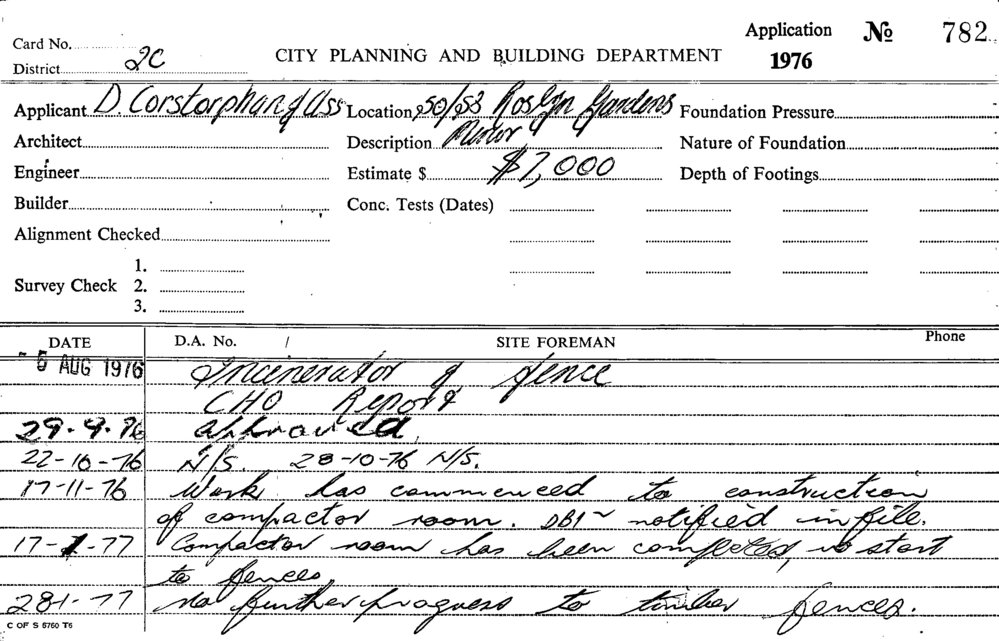 Application № 782
Card No.
CITY PLANNING AND BUILDING DEPARTMENT
1976
District 2C
Applicant D. Corstorphan & Ass Location 50/53 Roslyn Gardens Foundation Pressure
Architect Description Minor Nature of Foundation
Engineer Estimate $ $7,000 Depth of Footings
Builder Conc. Tests (Dates)
Alignment Checked
1.
Survey Check 2.
3.
DATE D.A. No. SITE FOREMAN Phone
- 5 AUG 1976 Incenerator & fence
CHO Report
29.9.76 approved
22-10-76 N/S. 28-10-76 N/S.
17-11-76 Work has commenced to construction
of compactor room. notified in file.
17-1-77 Compactor room has been completed, no start
to fences,
28-1-77 No further progress to timber fences.
C OF S 6760 T6